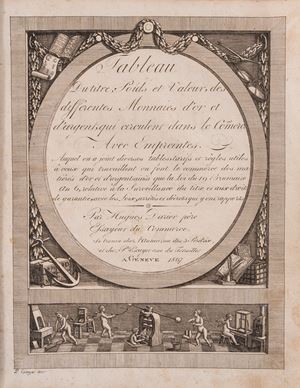 Tableau
Du titre, Poids et Valeur, des
différentes Monnaies d'or et
d'argent, qui circulent dans le Comerce
Avec Empreintes.
Auquel on a joint diverses tables, tarifs et règles utiles
à ceux qui travaillent ou font le commerce des ma
tières d'or et d'argent, ainsi que la Loi du 19 Brumaire
An 6, relative à la Surveillance du titre et aux droits
de garantie
Par Hugues Darier père
Essayeur du Commerce.
Se trouve chez l'Auteur
A GENEVE 1807